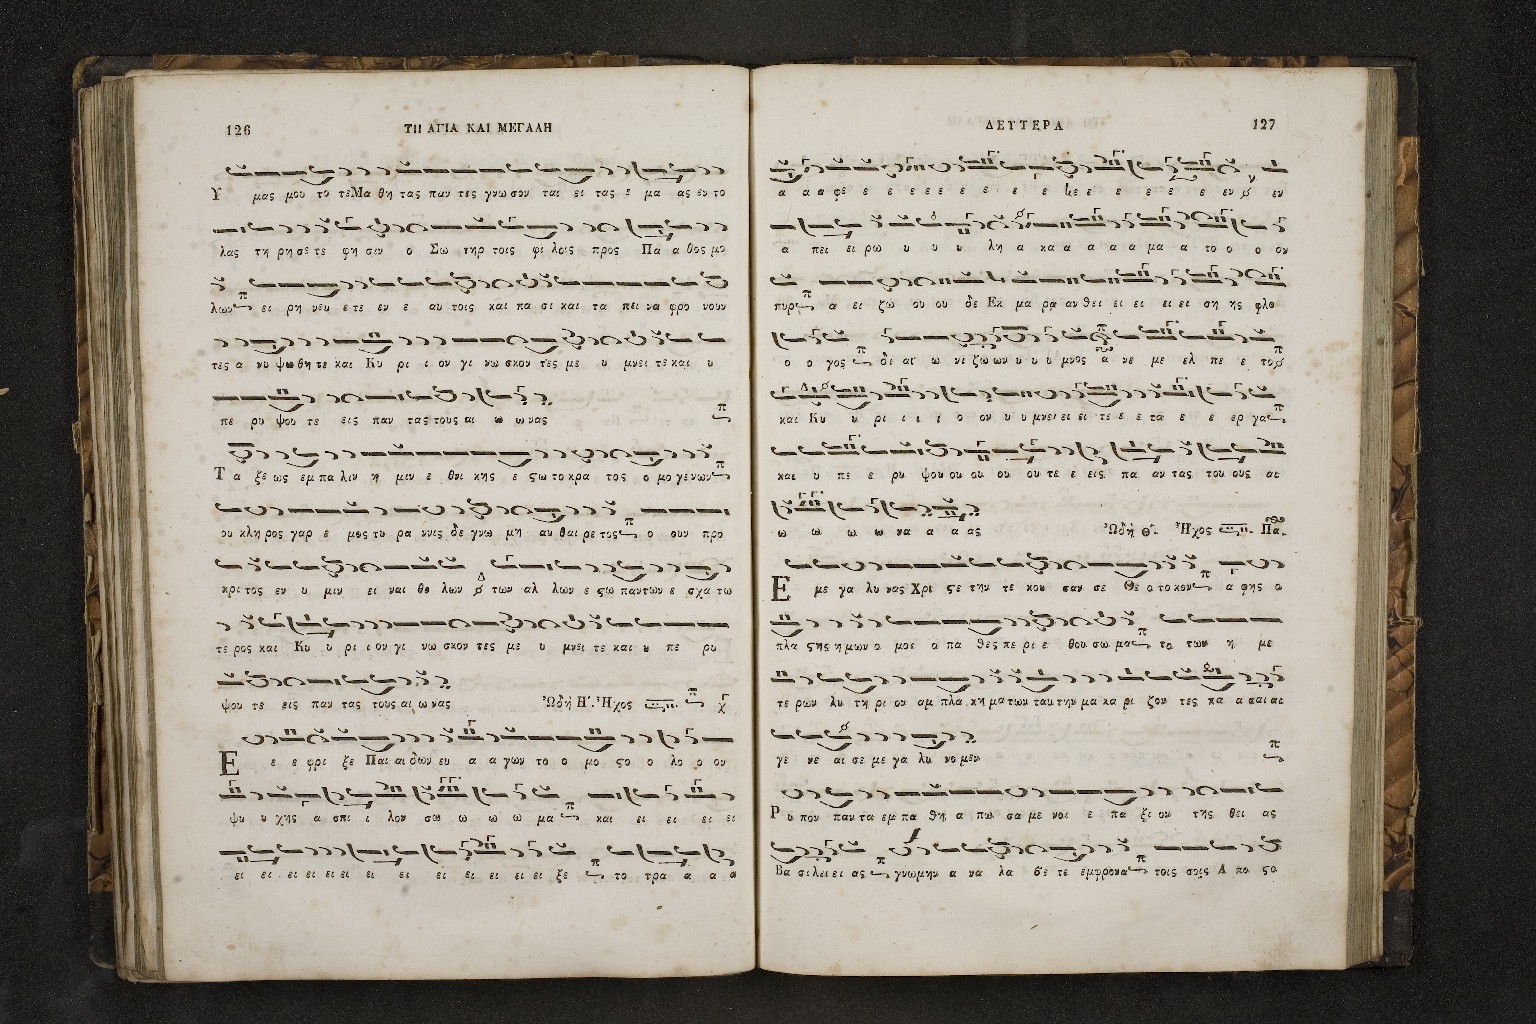 126
ΤΗ ΑΓΙΑ ΚΑΙ ΜΕΓΑΛΗ
Υ μας μου το τε Μα θη τας παν τες γνω σον ται ει τας ε μα ας εν το
λας τη ρη σε τε φη σιν ο Σω τηρ τοις φι λοις προς Πα α θος μο
λων ει ρη νευ ε τε εν ε αυ τοις και πα σι και τα πει να φρο νουν
τες α νυ ψω θη τε και Κυ ρι ι ον γι νω σκον τες με υ μνει τε και υ
πε ρυ ψου τε εις παν τας τους αι ω ω νας
Τ α ξε ως εμ πα λιν η μιν ε θνι κης ε ϛω το κρα τος ο μο γε νων
ου κλη ρος γαρ ε μος τυ ρα ννις δε γνω μη αυ θαι ρε τος ο ουν προ
κρι τος εν υ μιν ει ναι θε λων των αλ λων ε ϛω παντων ε σχα τω
τε ρος και Κυ υ ρι ι ον γι νω σκον τες με υ μνει τε και υ πε ρυ
ψου τε εις παν τας τους αι ω νας Ὠδὴ Η΄. Ἦχος
Ε ε ε φρι ξε Παι αι δων ευ α α γων το ο μο ϛο ο λο ο ου
ψυ υ χης α σπι ι λον σω ω ω ω μα και ει ει ει ει
ει ει ει ει ει ει ει ει ει ει ει ει ει ξε το τρα α α α
ΔΕΥΤΕΡΑ
127
α α α φε ε ε ε ε ε ε ε ε ε ε ε ε ε ε ε εν εν
α πει ει ρω υ υ υ λη α κα α α α α μα α το ο ο ον
πυρ α ει ζω ου ου δε Εκ μα ρα αν θει ει ει ει ει ση ης φλο
ο ο γος δι αι ω νι ζω ων υ υ υ μνος α νε με ελ πε ε το
και Κυ υ ρι ι ι ι ο ον υ υ μνει ει ει τε ε ε τα ε ε ερ γα
και υ πε ε ρυ ψου ου ου ου ου τε ε ε εις πα αν τας του ους αι
ω ω ω ω να α α ας Ὠδὴ Θ΄. Ἦχος Πα.
Ε με γα λυ νας Χρι ϛε την τε κου σαν σε Θε ο το κον α φης ο
πλα ϛης η μων ο μοι ο πα θες πε ρι ε θου σω μα το των η με
τε ρων λυ τη ρι ον αμ πλα κη μα των ταυ την μα κα ρι ζον τες πα α σαι αι
γε νε αι σε με γα λυ νο μεν
Ρ υ πον παν τα εμ πα θη α πω σα με νοι ε πα ξι ον της θει ας
Βα σι λει ει ας γνωμην α να λα βε τε εμφρονα τοις σοις Α πο ϛο